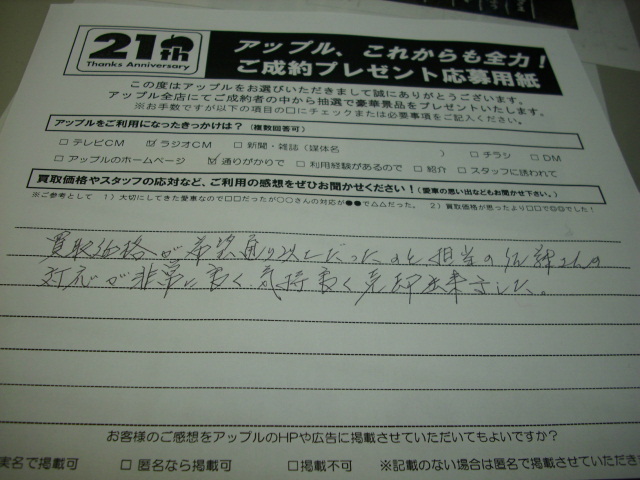 21th
Thanks Anniversary
アップル、これからも全力!
ご成約プレゼント応募用紙
この度はアップルをお選びいただきまして誠にありがとうございます。
アップル全店にてご成約者の中から抽選で豪華景品をプレゼントいたします。
※お手数ですが以下の項目の□にチェックまたは必要事項をご記入ください。
アップルをご利用になったきっかけは?(複数回答可)
□ テレビCM ☑ ラジオCM □ 新聞・雑誌(媒体名 ) □ チラシ □ DM
□ アップルのホームページ ☑ 通りがかりで □ 利用経験があるので □ 紹介 □ スタッフに誘われて
買取価格やスタッフの応対など、ご利用の感想をぜひお聞かせください!(愛車の思い出などもお聞かせ下さい。)
※ご参考として 1)大切にしてきた愛車なので□□だったが○○さんの対応が●●で△△だった。 2)買取価格が思ったより□□で◎◎でした!
買取価格が希望通り以上だったのと担当の佐藤さんの
対応が非常に良く、気持良く売却出来ました。
お客様のご感想をアップルのHPや広告に掲載させていただいてもよいですか?
実名で掲載可 □ 匿名なら掲載可 □ 掲載不可 ※記載のない場合は匿名で掲載させ